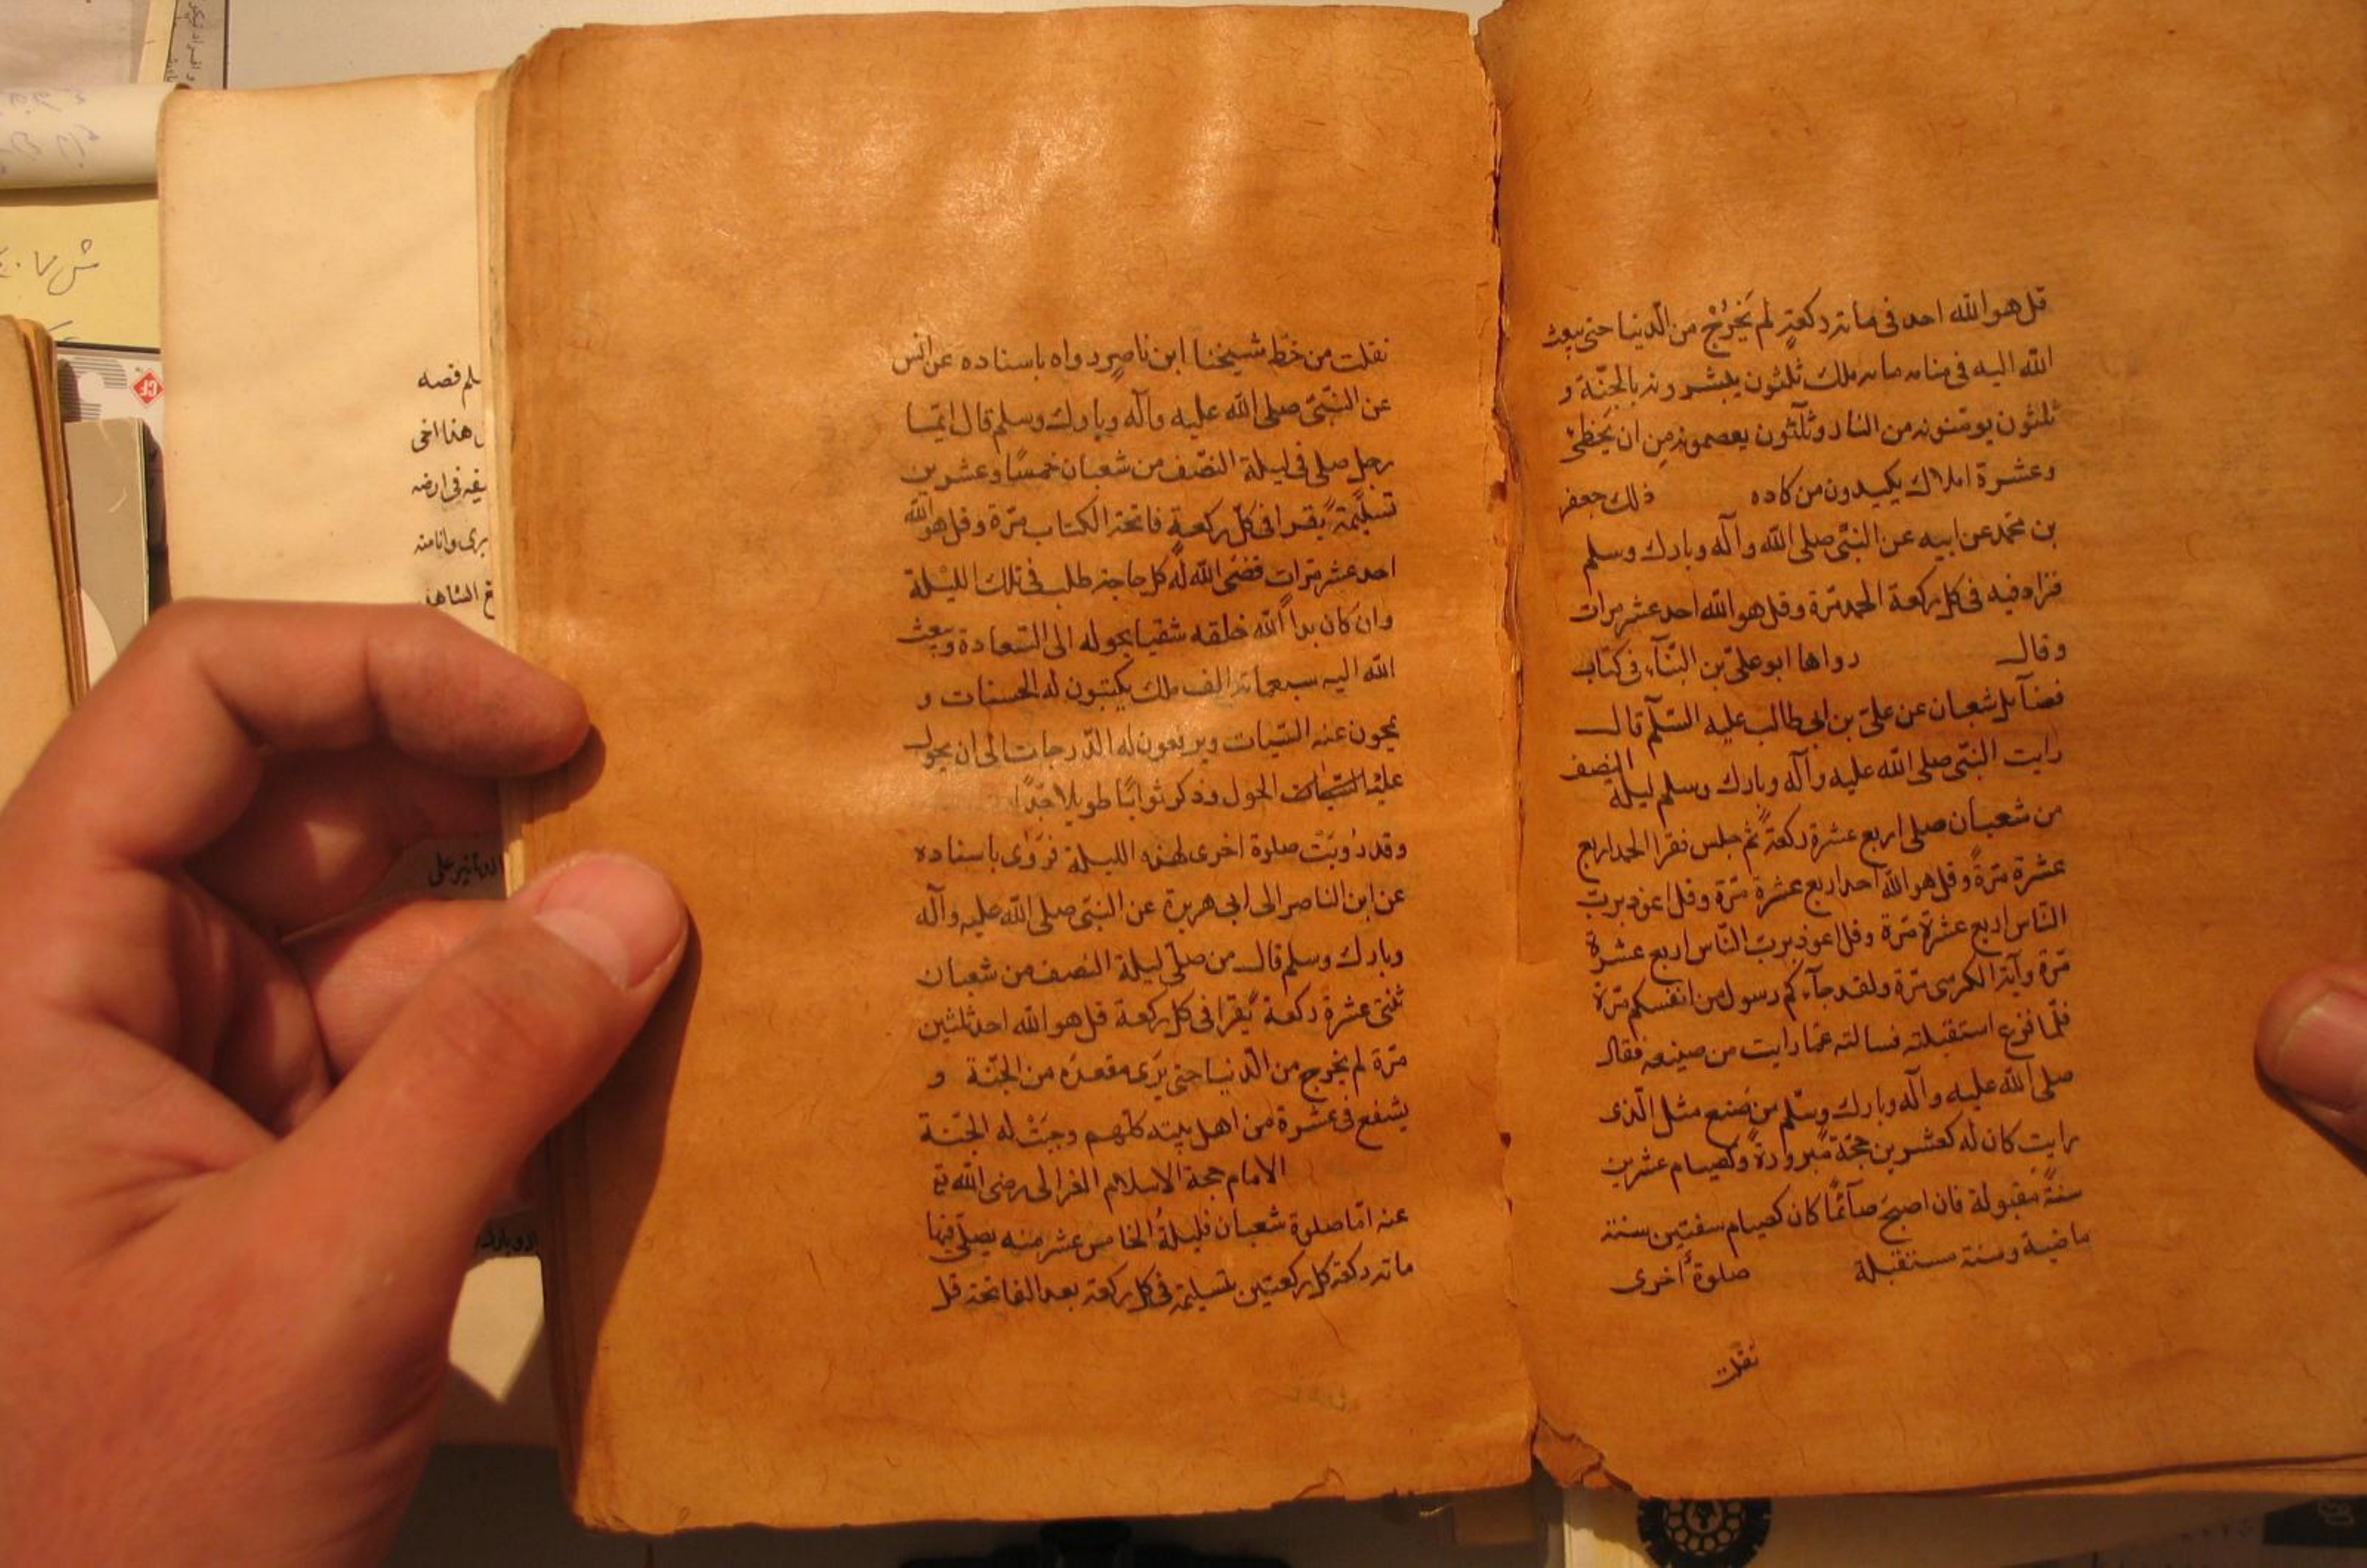 قل هو الله احد فى مائة ركعة لم يَخْرُجْ من الدّنيا حتى يبعث
الله اليه فى منامه مائة ملك ثلثون يبشرونه بالجنّة و
ثلثون يومنونه من النار وثلثون يعصمونه من ان يخطئ
وعشرة املاك يكيدون من كاده ذلك جعفر
بن محمد عن ابيه عن النبّى صلى الله وآله وبارك وسلم
فزاد فيه فى كل ركعة الحمد مرّة وقل هو الله احد عشر مرات
وقال رواها ابو على بن البنّآء فى كتاب
فضآئل شعبان عن علىّ بن ابى طالب عليه السّلم قال
رايت النبّى صلى الله عليه وآله وبارك وسلم ليلة النصف
من شعبان صلى اربع عشرة ركعة ثم جلس فقرا الحمد اربع
عشرة مرّة وقل هو الله احد اربع عشرة مرّة وقل اعوذ برب
النّاس اربع عشرة مرّة وقل اعوذ برب النّاس اربع عشرة
مرّة وآية الكرسى مرّة ولقد جآءكم رسول من انفسكم مرّة
فلّما فزع استقبلته فسالته عمّا رايت من صنيعه فقال
صلى الله عليه وآله وبارك وسلّم من صنع مثل الّذى
رايت كان له كعشرين حجّة مبرورة وكصيام عشرين
سنة مقبولة فان اصبح صآئمًا كان كصيام سنتين سنة
ماضية وسنة مستقبلة صلوة أخرى
نقلت
نقلت من خطّ شيخنا ابن ناصر رواه باسناده عن انس
عن النبّى صلى الله عليه وآله وبارك وسلم قال ايّما
رجل صلى فى ليلة النصف من شعبان خمسًا وعشرين
تسليمة يقرا فى كلّ ركعة فاتحة الكتاب مرّة وقل هو الله
احد عشر مرّات قضى الله له كل حاجة طلب فى تلك الليلة
وان كان بدأ الله خلقه شقيا يحوله الى السّعادة ويبعث
الله اليه سبعمائة الف ملك يكتبون له الحسنات و
يمحون عنه السّيات ويرفعون له الدّرجات الى ان يحول
عليه الحول وذكر ثوابًا طويلا جدًّا
وقد رُويَتْ صلوة اخرى لهذه الليلة نروى باسناده
عن ابن الناصر الى ابى هريرة عن النبّى صلى الله عليه وآله
وبارك وسلم قال من صلّى ليلة النصف من شعبان
ثنتى عشرة ركعة يقرا فى كل ركعة قل هو الله احد ثلثين
مرّة لم يخرج من الدّنيا حتى يَرَى مقعده من الجنّة و
يشفع فى عشرة من اهل بيته كلّهم وجبَتْ له الجنّة
الامام حجة الاسلام الغزالى رضى الله تع
عنه امّا صلوة شعبان فليلةُ الخامس عشر منه يصلّى فيها
مائة ركعة كل ركعتين بتسليمة فى كل ركعة بعد الفاتحة قل
لم قصه
هذا اخى
فى ارضه